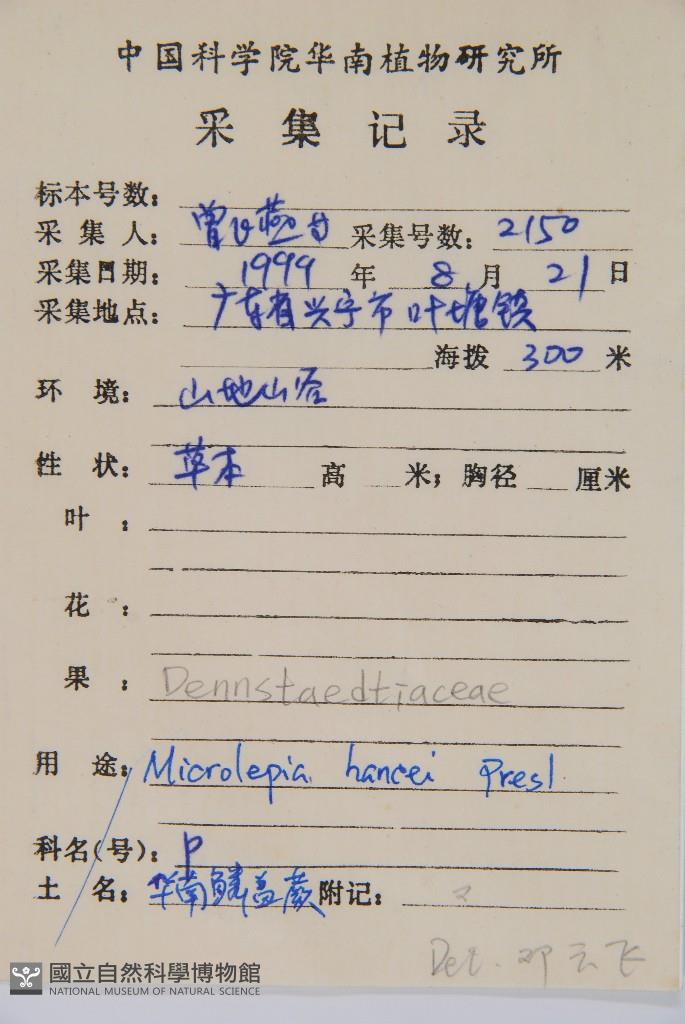 中国科学院华南植物研究所
采集记录
标本号数:
采集人: 曾 采集号数: 2150
采集日期: 1999 年 8 月 21 日
采集地点: 广东省兴宁市叶塘镇
海拨 300 米
环境: 山地山谷
性状: 草本 高 米; 胸径 厘米
叶:
花:
果: Dennstaedtiaceae
用途: Microlepia hancei Presl
科名(号): P
土名: 华南鳞盖蕨 附记:
Det. 邓云飞
國立自然科學博物館
NATIONAL MUSEUM OF NATURAL SCIENCE